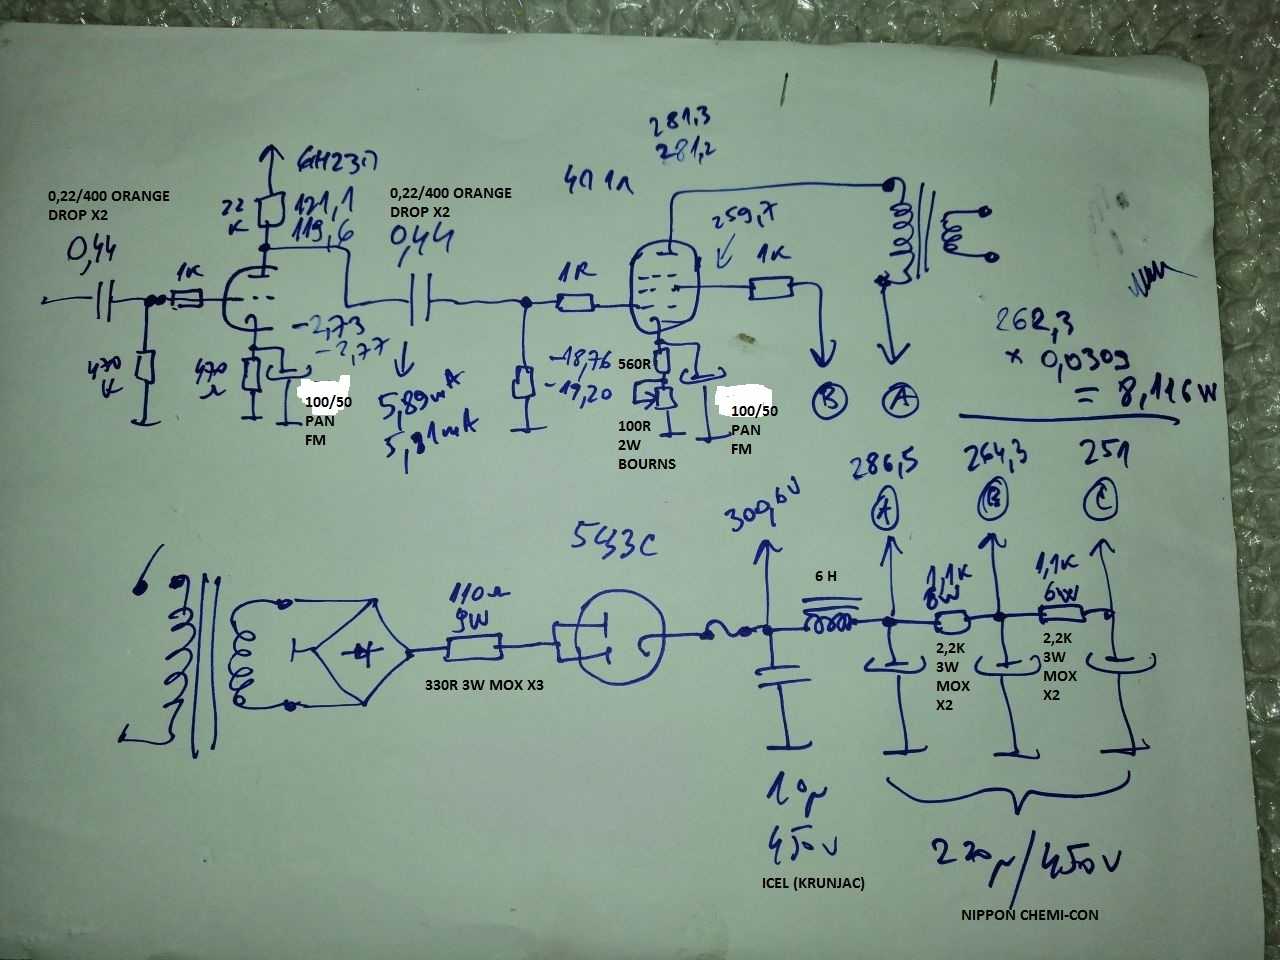 281,3
281,2
6H23П
4П1Л
0,22/400 ORANGE
DROP X2
0,44
22
K
121,1
119,6
0,22/400 ORANGE
DROP X2
0,44
259,7
1K
1K
1K
-2,73
-2,77
470
K
470
Ω
100/50
PAN
FM
5,89mA
5,81mA
-18,76
-19,20
560R
100R
2W
BOURNS
100/50
PAN
FM
B
A
262,3
x 0,0309
= 8,116W
309,6V
286,5
A
264,3
B
251
C
5Ц3С
110Ω
9W
330R 3W MOX X3
6 H
1,1K
6W
2,2K
3W
MOX
X2
1,1K
6W
2,2K
3W
MOX
X2
10μ
450V
ICEL (KRUNJAC)
220μ/450V
NIPPON CHEMI-CON